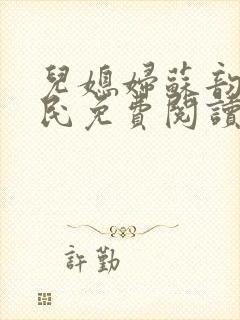 兒媳婦蘇韵
民免費閱讀
許勤